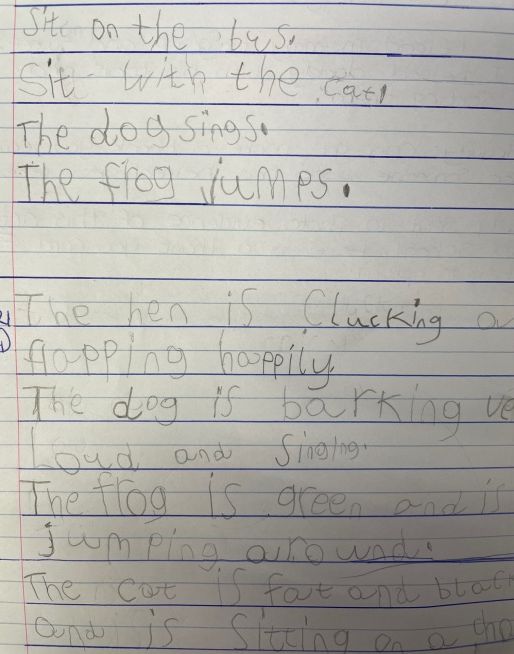 Sit on the bus.
Sit with the cat.
The dog sings.
The frog jumps.
The hen is Clucking a
flapping happily.
The dog is barking ve
Loud and Singing.
The frog is green and is
jumping around.
The cat is fat and black
and is Sitting on a